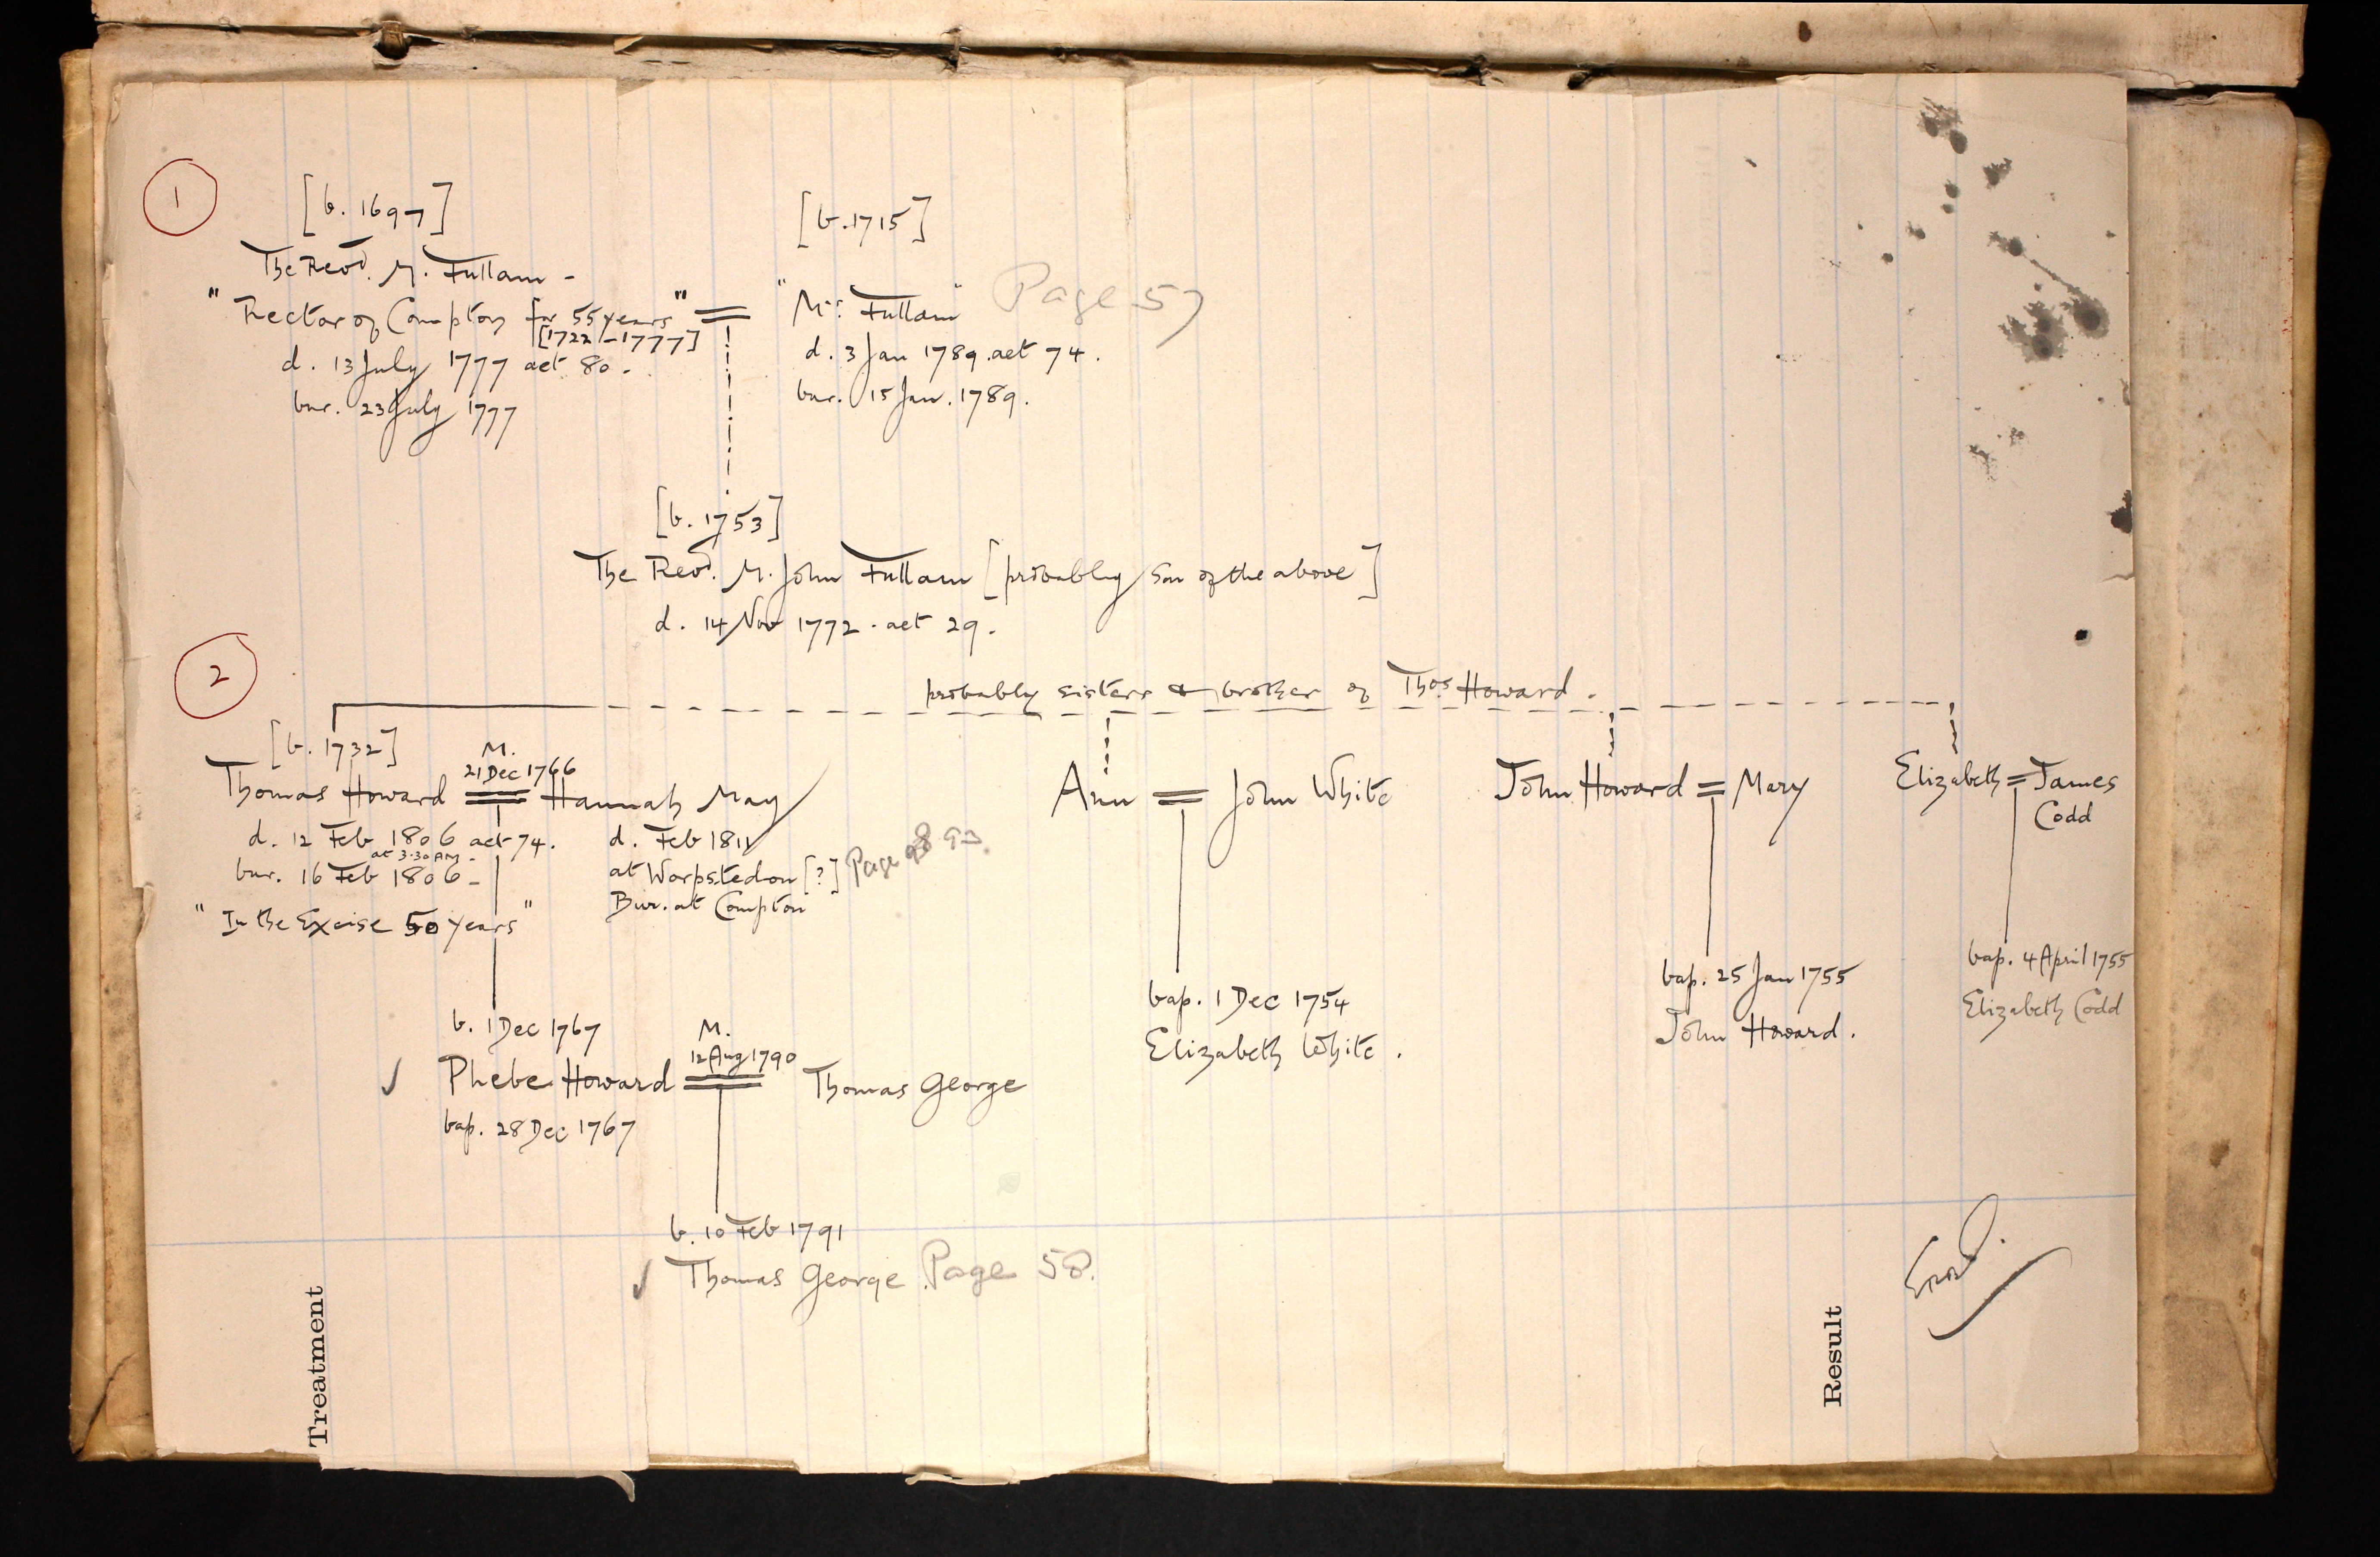 1
[b. 1697]
The Revd. M. Fullam -
"Rector of Compton for 55 years"
[1722-1777]
d. 13 July 1777 aet 80.
bur. 23 July 1777
[b. 1715]
"Mrs. Fullam" Page 57
d. 3 Jan 1789. aet 74.
bur. 15 Jan. 1789.
[b. 1753]
The Revd. M. John Fullam [probably son of the above]
d. 14 Nov 1772. aet 29.
2
probably sisters & brother of Thos. Howard.
[b. 1732]
M.
21 Dec 1766
Thomas Howard = Hannah May
d. 12 Feb 1806 aet 74.
at 3.30 AM.
bur. 16 Feb 1806 -
"In the Excise 50 years"
d. Feb 1811
at Worpstedon [?] Page 93.
Bur. at Compton
Ann = John White
John Howard = Mary
Elizabeth = James
Codd
b. 1 Dec 1767
M.
12 Aug 1790
✓ Phebe Howard = Thomas George
bap. 28 Dec 1767
bap. 1 Dec 1754
Elizabeth White.
bap. 25 Jan 1755
John Howard.
bap. 4 April 1755
Elizabeth Codd
b. 10 Feb 1791
✓ Thomas George. Page 58.
Treatment
Result